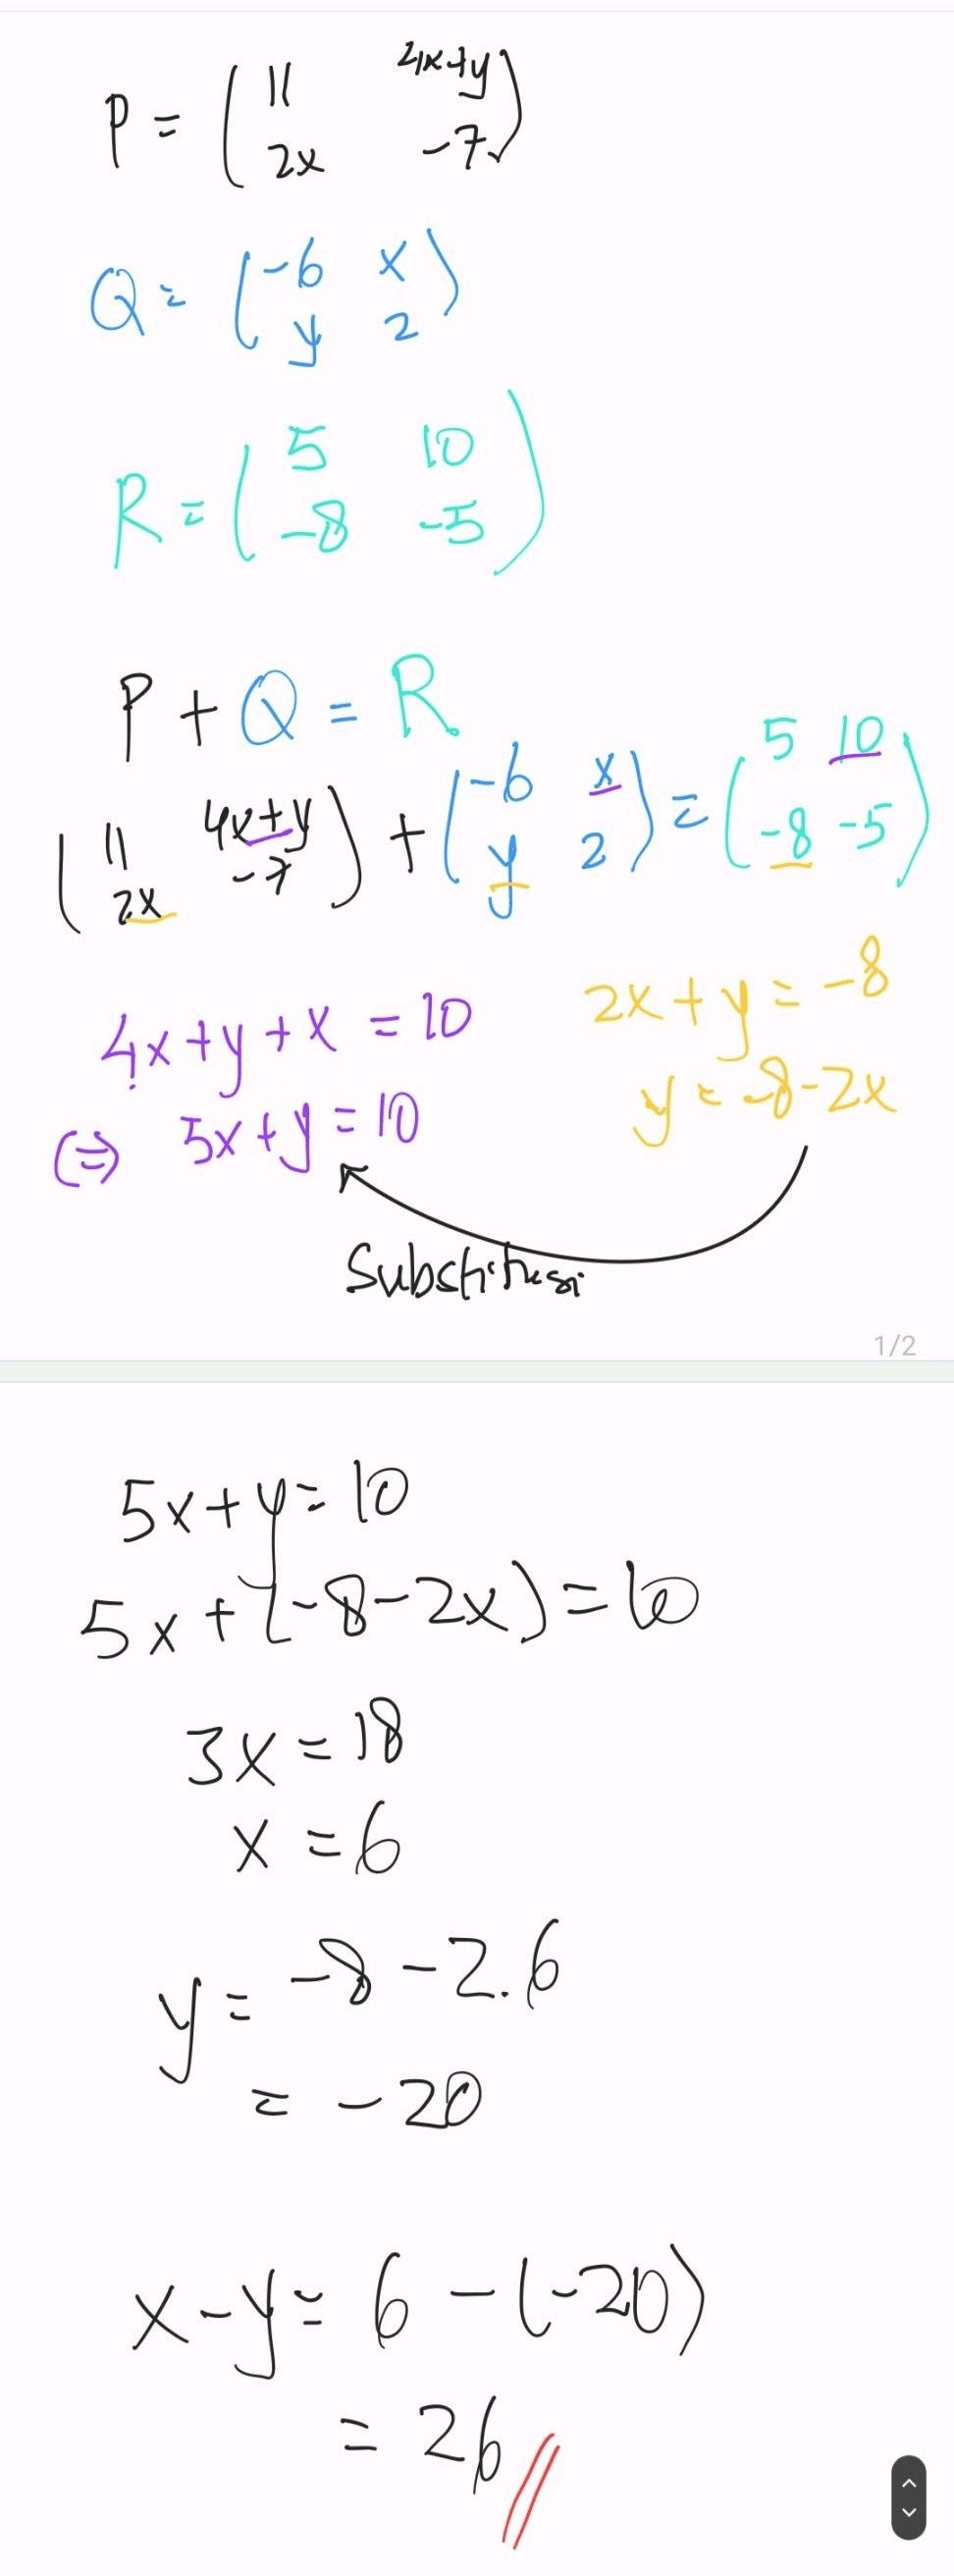 P = ( 11 4x+y
2x -7 )
Q = ( -6 x
y 2 )
R = ( 5 10
-8 -5 )
P + Q = R
( 11 4x+y
2x -7 ) + ( -6 x
y 2 ) = ( 5 10
-8 -5 )
4x+y+x = 10
(=) 5x+y = 10
2x+y = -8
y = -8-2x
Substitusi
1/2
5x+y = 10
5x+(-8-2x) = 10
3x = 18
x = 6
y = -8-2.6
= -20
x-y = 6-(-20)
= 26 //